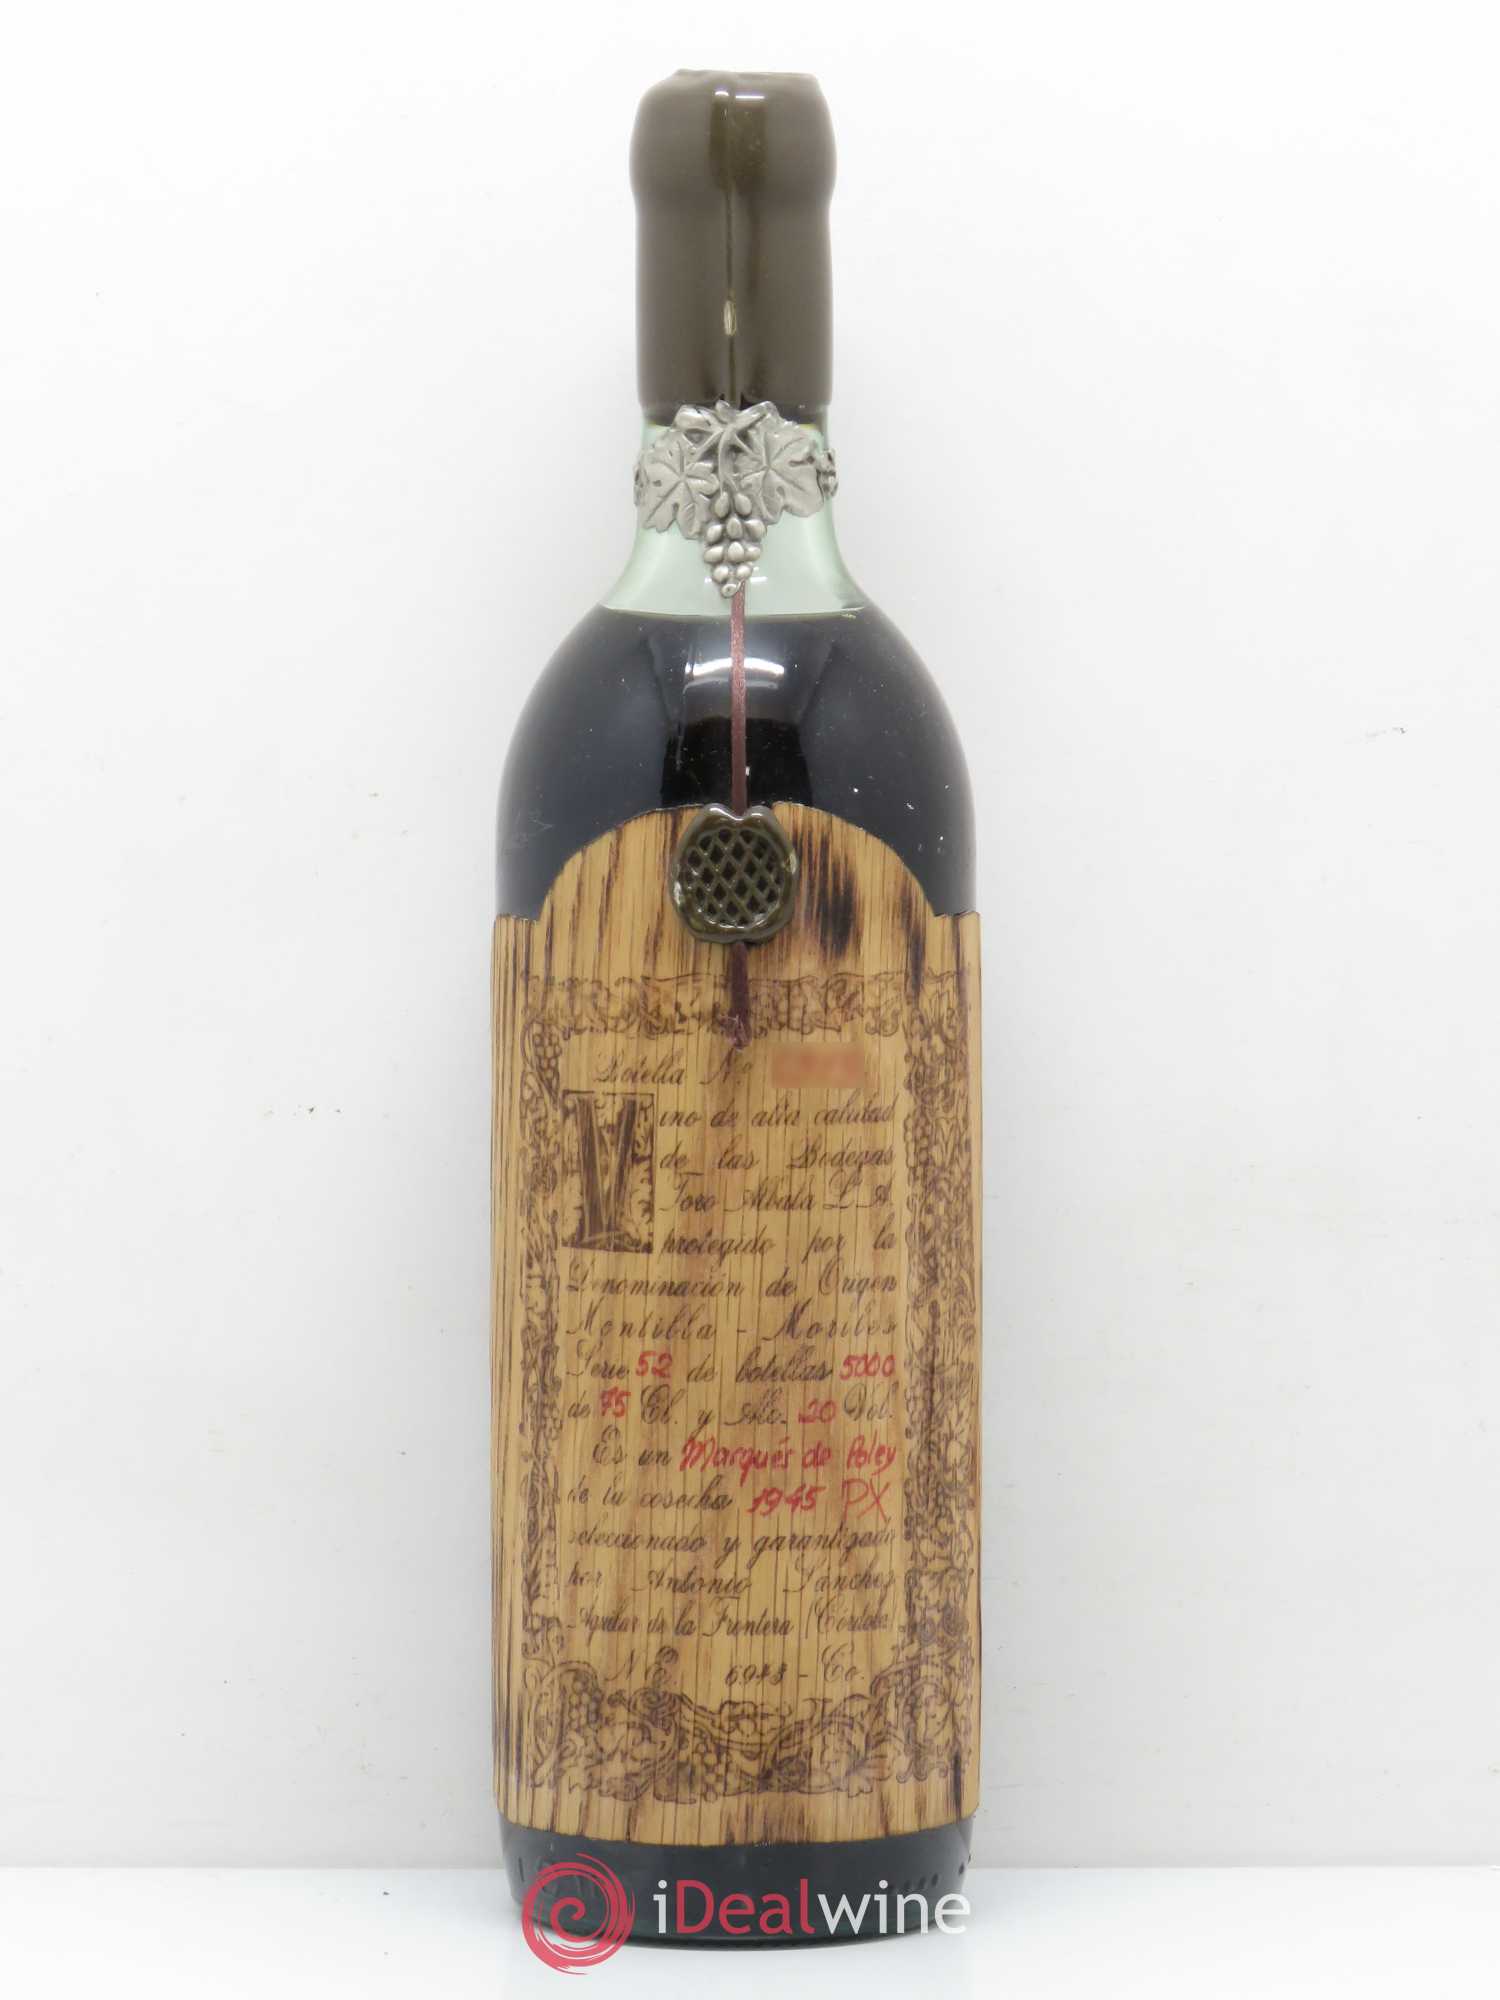 Botella Nº
Vino de alta calidad
de las Bodegas
Toro Albala S.A.
protegido por la
Denominación de Origen
Montilla - Moriles
Serie 52 de botellas 5000
de 75 Cl. y Alc. 20 Vol.
Es un Marqués de Poley
de la cosecha 1945 PX
seleccionado y garantizado
por Antonio Sánchez
Aguilar de la Frontera (Córdoba)
N.E. - Co.
iDealwine